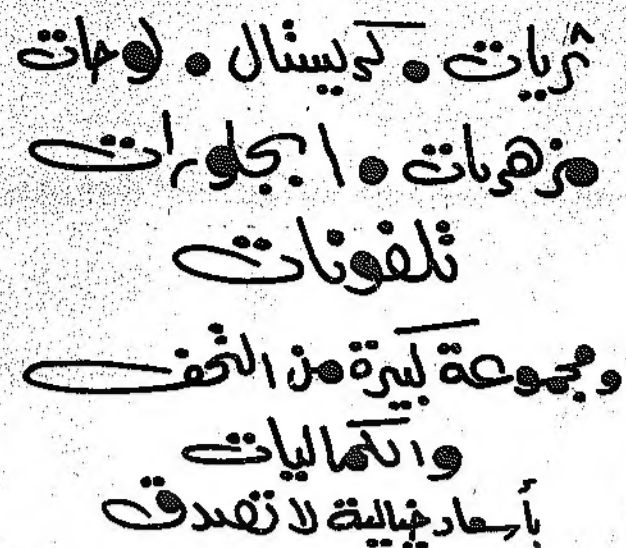 ثريات • كريستال • لوحات
مزهريات • ابجلورات
تلفونات
ومجموعة كبيرة من التحف
والكماليات
بأسعار خيالية لا تصدق